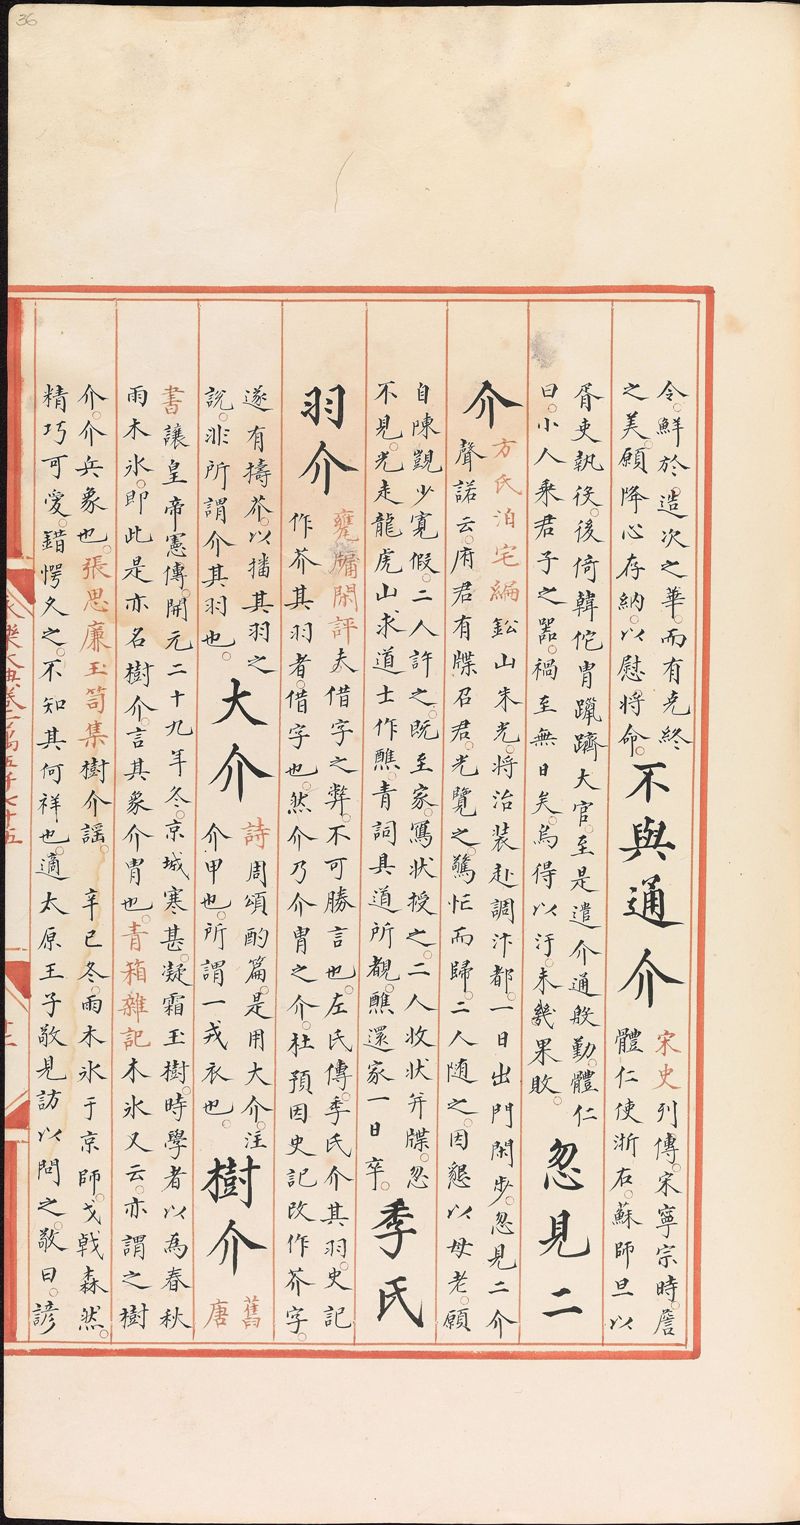 36
令。鮮於。造次之華。而有克終
之美。願降心存納。以慰將命。
不與通介
宋史列傳。宋寧宗時。詹
體仁使浙右。蘇師旦以
胥吏執役。後倚韓侂胄躐躋大官。至是遣介通殷勤。體仁
曰。小人乘君子之器。禍至無日矣。烏得以汙。未幾果敗。
忽見二
介
方氏泊宅編鉛山朱光。將治裝赴調汴都。一日出門閑步。忽見二介
聲諾云。府君有牒召君。光覽之驚怖而歸。二人随之。因懇以母老。願
自陳覬少寬假。二人許之。既至家。寫狀授之。二人收狀并牒。忽
不見。光走龍虎山求道士作醮。青詞具道所覩。醮還家一日卒。
季氏
羽介
甕牖閑評夫借字之弊。不可勝言也。左氏傳。季氏介其羽。史記
作芥其羽者。借字也。然介乃介胄之介。杜預因史記改作芥字。
遂有擣芥。以播其羽之
說。非所謂介其羽也。
大介
詩周頌酌篇。是用大介。注
介甲也。所謂一戎衣也。
樹介
舊
唐
書讓皇帝憲傳。開元二十九年冬。京城寒甚。凝霜玉樹。時學者以為春秋
雨木氷。即此是亦名樹介。言其象介胄也。青箱雜記木氷又云。亦謂之樹
介。介兵象也。張思廉玉笥集樹介謡。 辛巳冬。雨木氷于京師。戈戟森然。
精巧可愛。錯愕久之。不知其何祥也。適太原王子敬見訪以問之。敬曰。諺